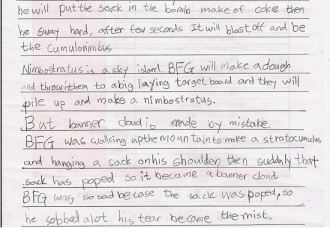 he will put the sack in the bomb make of coke then
he sway hard, after few seconds It will blast off and be
the Cumulonimbus
Nimbostratus is a sky island. BFG will make a dough
and throw them to a big laying target board and they will
pile up and make a nimbostratus.
But banner cloud is made by mistake.
BFG was walking up the mountain to make a stratocumulus
and hanging a sack on his shoulder then suddenly that
sack has poped so it became a banner cloud.
BFG was so sad becase the sack was poped, so
he sobbed alot his tear become the mist.